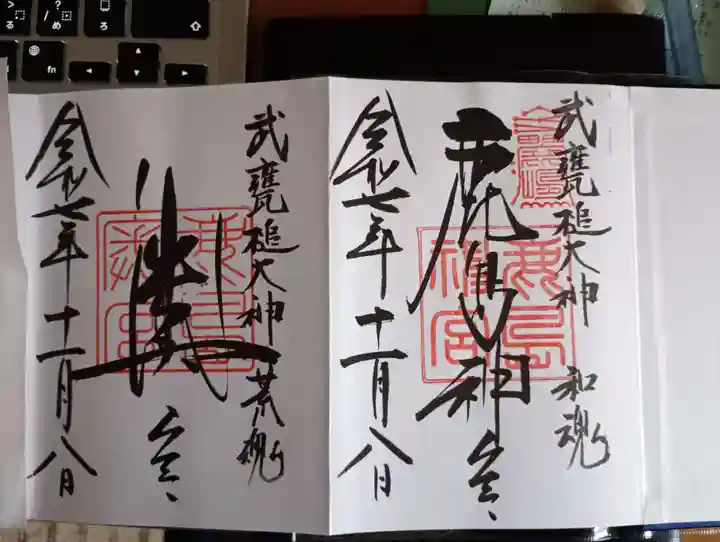 武甕槌大神 和魂
鹿島神宮
令和七年十一月八日
武甕槌大神 荒魂
奥宮
令和七年十一月八日
鹿島神宮
fn